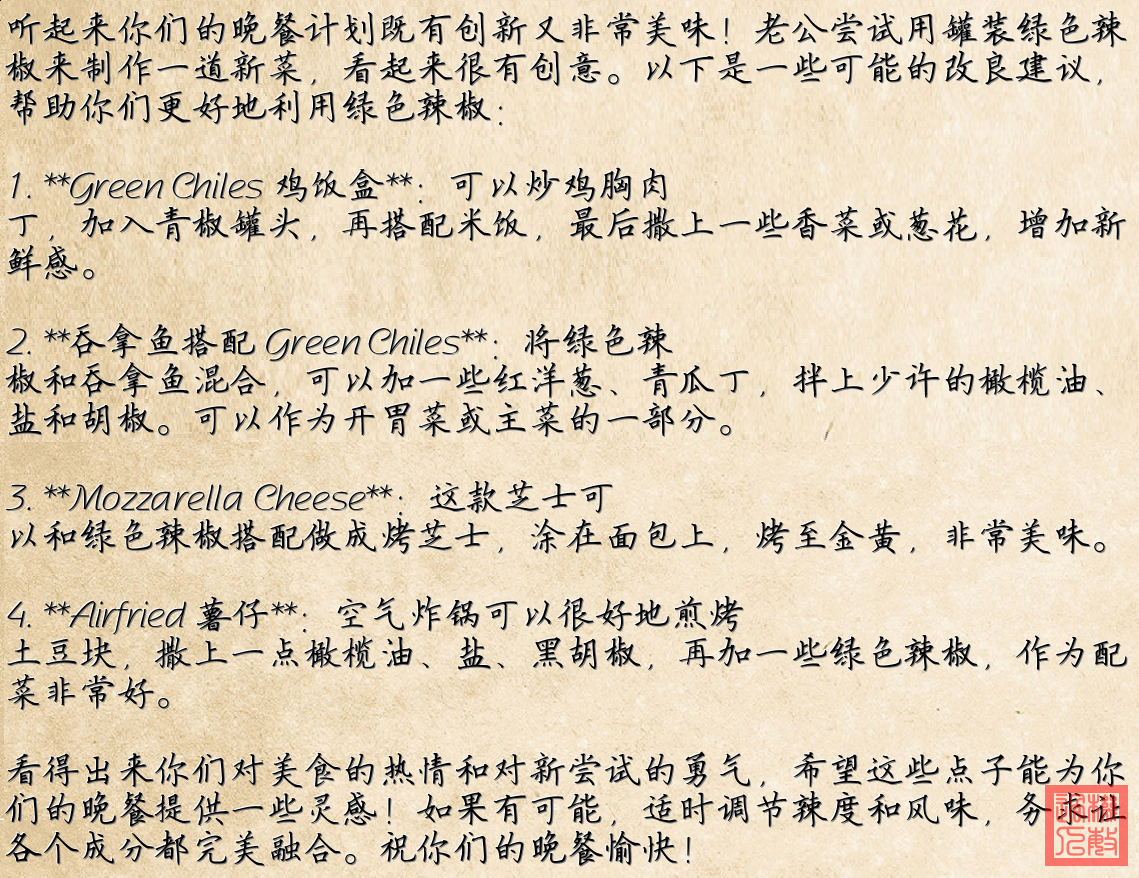 听起来你们的晚餐计划既有创新又非常美味！老公尝试用罐装绿色辣
椒来制作一道新菜，看起来很有创意。以下是一些可能的改良建议，
帮助你们更好地利用绿色辣椒：
1. **Green Chiles 鸡饭盒**：可以炒鸡胸肉
丁，加入青椒罐头，再搭配米饭，最后撒上一些香菜或葱花，增加新
鲜感。
2. **吞拿鱼搭配 Green Chiles**：将绿色辣
椒和吞拿鱼混合，可以加一些红洋葱、青瓜丁，拌上少许的橄榄油、
盐和胡椒。可以作为开胃菜或主菜的一部分。
3. **Mozzarella Cheese**：这款芝士可
以和绿色辣椒搭配做成烤芝士，涂在面包上，烤至金黄，非常美味。
4. **Airfried 薯仔**：空气炸锅可以很好地煎烤
土豆块，撒上一点橄榄油、盐、黑胡椒，再加一些绿色辣椒，作为配
菜非常好。
看得出来你们对美食的热情和对新尝试的勇气，希望这些点子能为你
们的晚餐提供一些灵感！如果有可能，适时调节辣度和风味，务求让
各个成分都完美融合。祝你们的晚餐愉快！